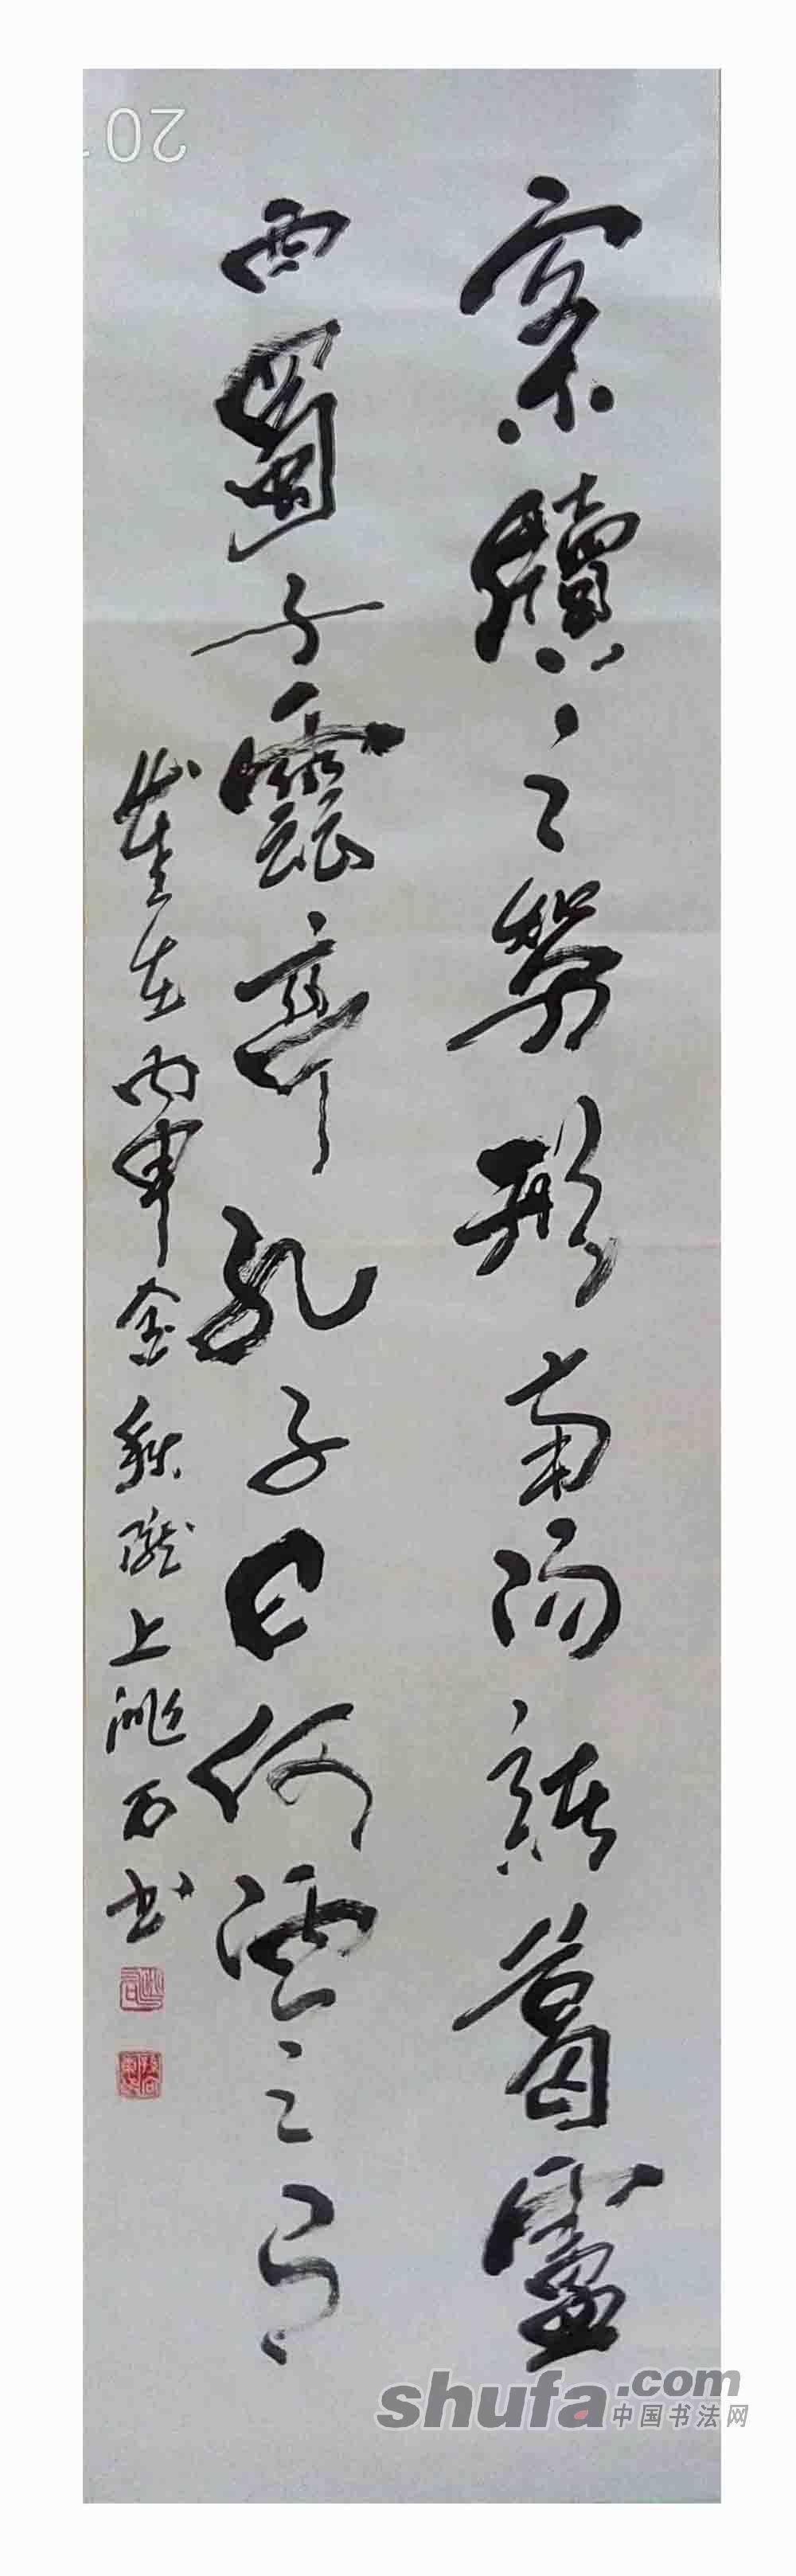 案牘之勞形南陽諸葛廬
西蜀子雲亭孔子曰何陋之有
歲在丙申金秋隴上洮石书
20
shufa.com
中国书法网